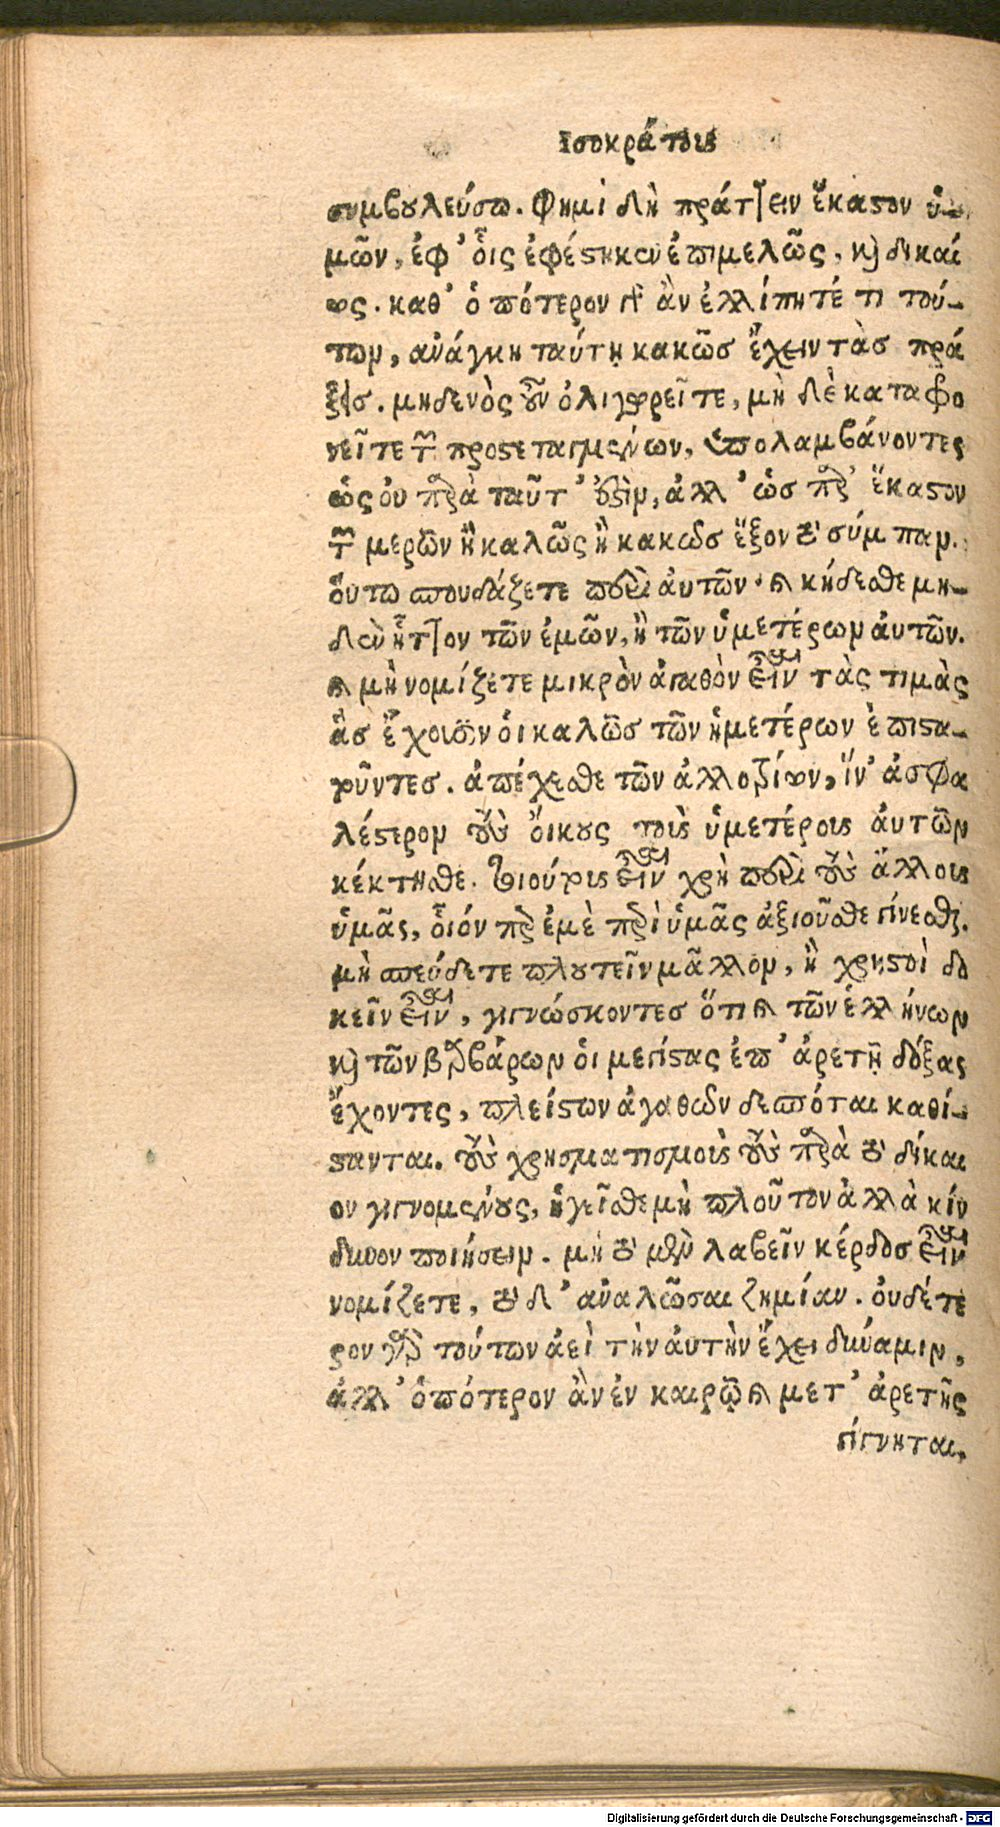 Ισοκράτους
συμβουλεύσω. Φημὶ δὴ πράττειν ἕκαστον ὑ-
μῶν, ἐφ' οἷς ἐφέστηκεν ἐπιμελῶς, καὶ δικαί
ως. καθ' ὁ πότερον γὰρ ἂν ἐλλίπητέ τι τού-
των, ἀνάγκη ταύτῃ κακῶσ ἔχειν τὰσ πρά
ξεισ. μηδενὸς οὖν ὀλιγωρεῖτε, μὴ δὲ καταφο
νεῖτε τῶν προστεταγμένων, ὑπολαμβάνοντες
ὡς οὐ παρὰ ταῦτ' ὄν, ἀλλ' ὡσ παρ' ἕκαστον
τῶν μερῶν ἢ καλῶς ἢ κακῶσ ἕξον τὸ σύμπαν.
ὅυτω σπουδάζετε περὶ ἀυτῶν. καὶ κήδεσθε μη-
δὲν ἧττον τῶν ἐμῶν, ἢ τῶν ὑμετέρων ἀυτῶν.
καὶ μὴ νομίζετε μικρὸν ἀγαθὸν εἶναι τὰς τιμὰς
ἃσ ἔχουσιν ὁι καλῶσ τῶν ἡμετέρων ἐπιστα-
τοῦντεσ. ἀπέχεσθε τῶν ἀλλοτρίων, ἵν' ἀσφα
λέστερον τοὺς ὄικους τοὺς ὑμετέρους ἀυτῶν
κέκτησθε. τοιούτους εἶναι χρὴ περὶ τοὺς ἄλλους
ὑμᾶς, ὅιόν περ ἐμὲ περὶ ὑμᾶς ἀξιοῦσθε γίνεσθαι.
μὴ σπεύδετε πλουτεῖν μᾶλλον, ἢ χρηστοὶ δο
κεῖν εἶναι, γιγνώσκοντεσ ὅτι καὶ τῶν ἑλλήνων
καὶ τῶν βαρβάρων ὁι μεγίστας ἐπ' ἀρετῇ δόξας
ἔχοντες, πλείστων ἀγαθῶν δεσπόται καθί-
στανται. τοὺς χρηματισμοὺς τοὺς παρὰ τὸ δίκαι
ον γιγνομένους, ἡγεῖσθε μὴ πλοῦτον ἀλλὰ κίν
δυνον ποιήσειν. μὴ τὸ μὲν λαβεῖν κέρδοσ εἶναι
νομίζετε, τὸ δ' ἀναλῶσαι ζημίαν. ὀυδέτε
ρον γὰρ τούτων ἀεὶ τὴν ἀυτὴν ἔχει δύναμιν,
ἀλλ' ὁπότερον ἂν ἐν καιρῷ καὶ μετ' ἀρετῆς
γίγνηται,
Digitalisierung gefördert durch die Deutsche Forschungsgemeinschaft - DFG